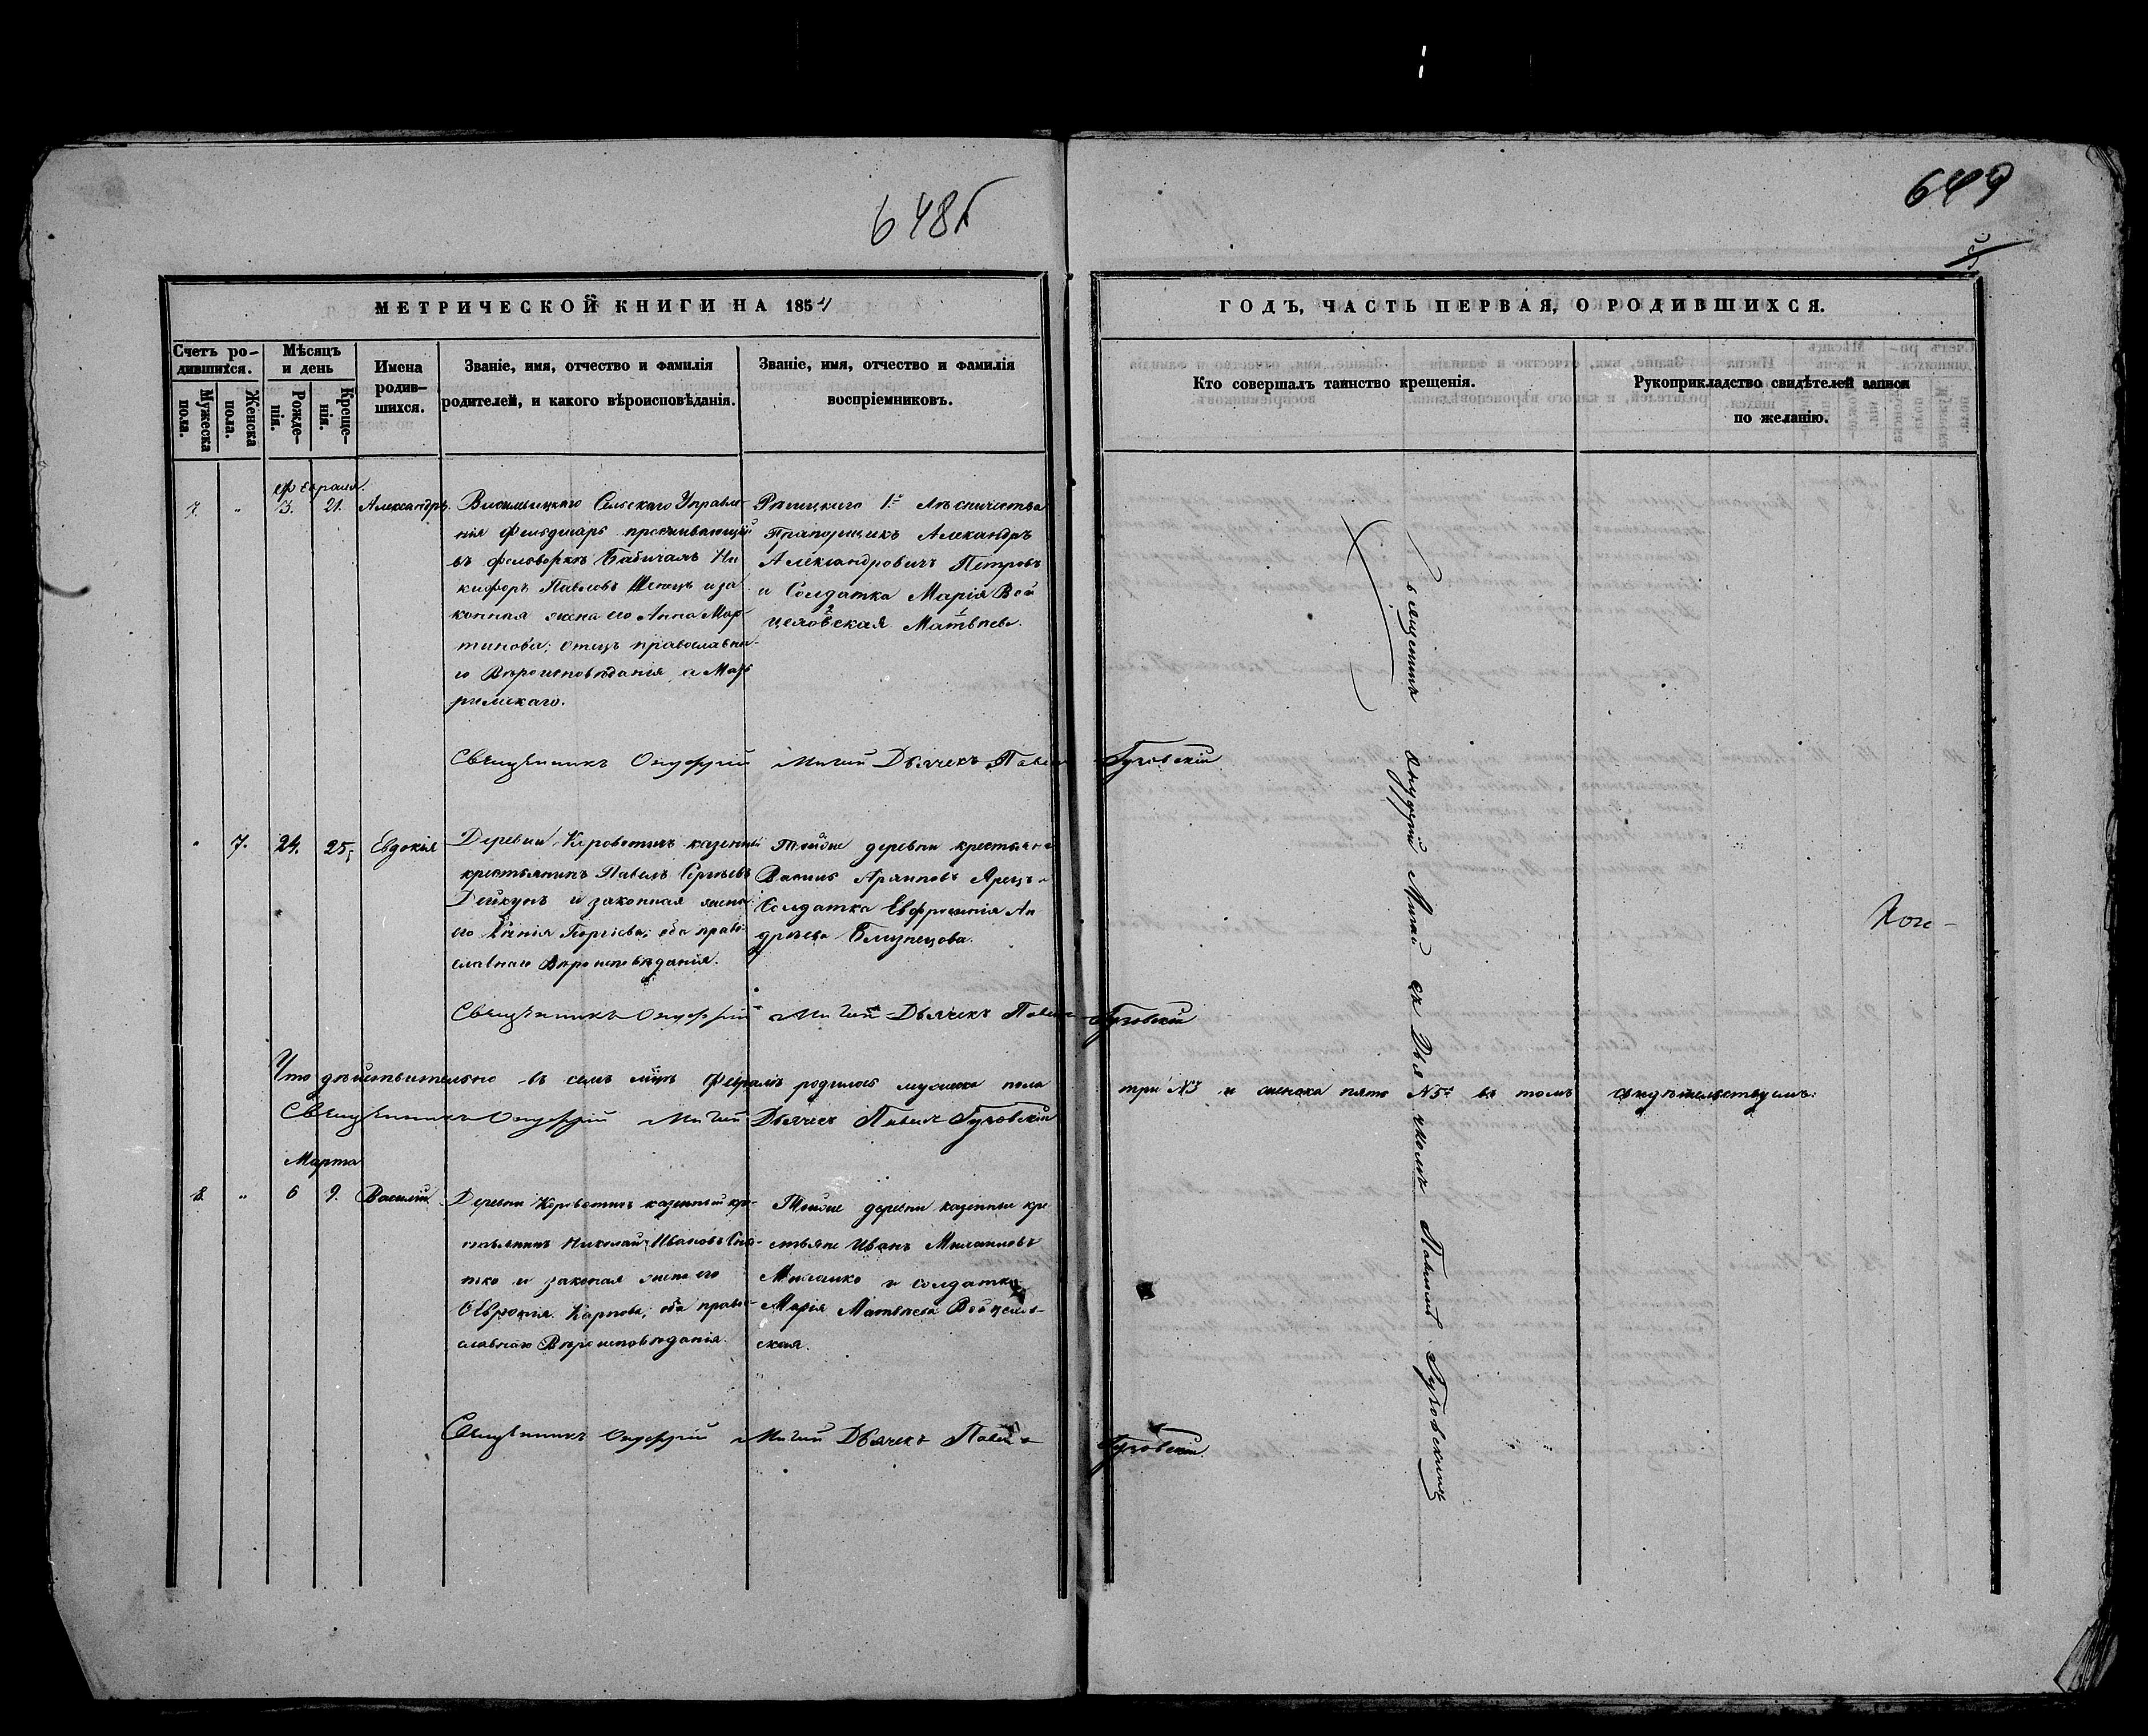 648б
649
МЕТРИЧЕСКОЙ КНИГИ НА 1854
ГОДЪ, ЧАСТЬ ПЕРВАЯ, О РОДИВШИХСЯ.
Счетъ ро-
дившихся.
Мужеска
пола.
Женска
пола.
Мѣсяцъ
и день
Рожде-
нія.
Креще-
нія.
Имена
родив-
шихся.
Званіе, имя, отчество и фамилія
родителей, и какого вѣроисповѣданія.
Званіе, имя, отчество и фамилія
воспріемниковъ.
Кто совершалъ таинство крещенія.
Рукоприкладство свидѣтелей записи
по желанію.
Февраля.
7. " 13. 21. Александръ.
Сельскаго Управле-
нія проживающій
въ фольворкѣ Бабичахъ Ни
кифоръ Павловъ и за
конная жена его Анна Мар
тинова; отецъ православна-
го Вѣроисповѣданія, а Мать
римскаго.
Рѣчицкаго 1го Лѣсничества
Прапорщикъ Александръ
Александровичъ Петровъ
и Солдатка Марія Вой
целовская Матвѣева.
Священникъ Онуфрій Мигай Дьячекъ Павелъ Гуховскій
" 7. 24. 25. Евдокія
Деревни Короватичъ казенный
крестьянинъ Павелъ Сергѣевъ
Дейкунъ и законная жена
его Георгіева; оба право
славнаго Вѣроисповѣданія.
Тойже деревни крестьянинъ
Солдатка Евфросинія Ан
дрѣева Близнецова.
Священникъ Онуфрій Мигай Дьячекъ Павелъ Гуховскій
Что дѣйствительно въ семъ мцѣ Февралѣ родилось мужеска пола три №3 и женска пять №5ть въ томъ свидѣтельствуемъ:
Священникъ Онуфрій Мигай Дьячекъ Павелъ Гуховскій
Марта
8. " 6 9. Василій
Деревни Короватичъ казенный кре-
стьянинъ Николай Ивановъ
и законая жена его
Карпова; оба право-
славнаго Вѣроисповѣданія.
Тойже деревни казенные кре
стьяне Иванъ Михаиловъ
и солдатка
Марія Матвѣева Войцелов-
ская.
Священникъ Онуфрій Мигай Дьячекъ Павелъ Гуховскій
Священникъ Онуфрій Мигай съ Дьячкомъ Павломъ Гуховскимъ